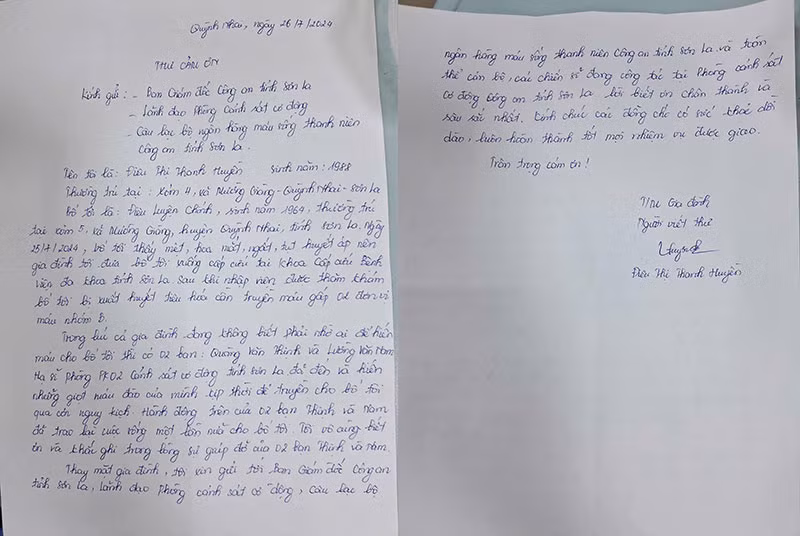 Quỳnh Nhai, ngày 26/7/2024
THƯ CẢM ƠN
Kính gửi: - Ban Giám đốc Công an tỉnh Sơn La
- Lãnh đạo Phòng Cảnh sát cơ động
- Câu lạc bộ ngân hàng máu sống thanh niên
Công an tỉnh Sơn La.
Tên tôi là: Điêu Thị Thanh Huyền sinh năm: 1988
Thường trú tại: Xóm 4, xã Mường Giàng - Quỳnh Nhai - Sơn La
Bố tôi là: Điêu Luyện Chính, sinh năm 1964, thường trú
tại xóm 5, xã Mường Giàng, huyện Quỳnh Nhai, tỉnh Sơn La. Ngày
25/7/2024, bố tôi thấy mệt, hoa mắt, ngất, tụt huyết áp nên
gia đình tôi đưa bố tôi xuống cấp cứu tại khoa Cấp cứu Bệnh
viện đa khoa tỉnh Sơn La sau khi nhập viện được thăm khám
bố tôi bị xuất huyết tiêu hóa cần truyền máu gấp 02 đơn vị
máu nhóm B.
Trong lúc cả gia đình đang không biết phải nhờ ai để hiến
máu cho bố tôi thì có 02 bạn: Quàng Văn Thinh và Lường Văn Nam
Hạ sĩ phòng PK02 Cảnh sát cơ động tỉnh Sơn La đã đến và hiến
những giọt máu đào của mình kịp thời để truyền cho bố tôi
qua cơn nguy kịch. Hành động trên của 02 bạn Thinh và Nam
đã trao lại cuộc sống một lần nữa cho bố tôi. Tôi vô cùng biết
ơn và khắc ghi trong lòng sự giúp đỡ của 02 bạn Thinh và Nam.
Thay mặt gia đình, tôi xin gửi tới Ban Giám đốc Công an
tỉnh Sơn La, Lãnh đạo Phòng cảnh sát cơ động, Câu lạc bộ
ngân hàng máu sống thanh niên Công an tỉnh Sơn La và toàn
thể cán bộ, các chiến sĩ đang công tác tại Phòng cảnh sát
cơ động Công an tỉnh Sơn La lời biết ơn chân thành và
sâu sắc nhất. Kính chúc các đồng chí có sức khỏe dồi
dào, luôn hoàn thành tốt mọi nhiệm vụ được giao.
Trân trọng cảm ơn!
T/M Gia đình
Người viết thư
Huyền
Điêu Thị Thanh Huyền